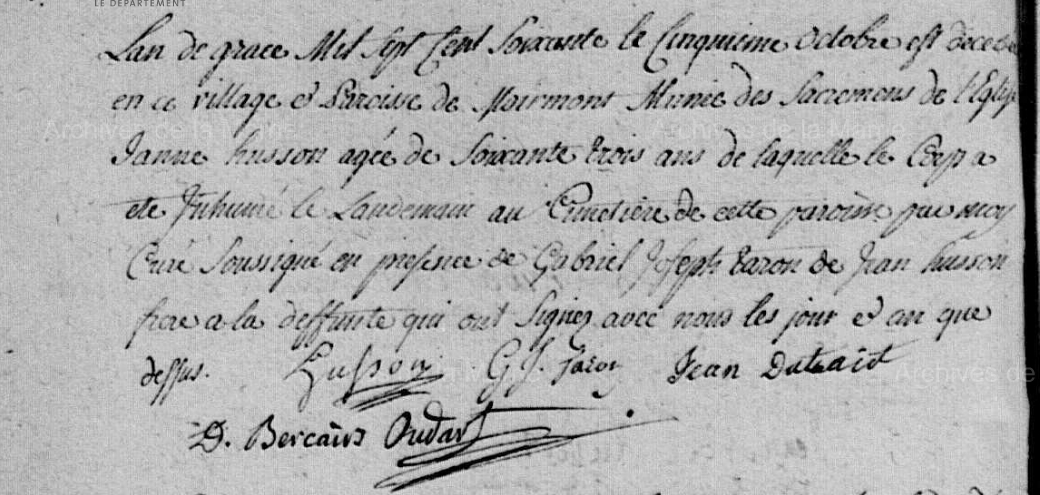 LE DÉPARTEMENT
Lan de grace Mil Sept Cent Soixante le Cinquieme Octobre est decedee
en ce village et Paroisse de Moirmont Munie des Sacremens de l'Eglise
Janne husson agée de Soixante trois ans de laquelle le Corp a
ete Inhumé le Landemain au Cimetière de cette paroisse par moy
Curé Soussigné en presence de Gabriel Joseph de Jean husson
frere a la deffunte qui ont Signez avec nous les jour et an que
dessus. husson G J. Jean
D. Oudart
Archives de la Marne
Archives de la Marne
Archives de